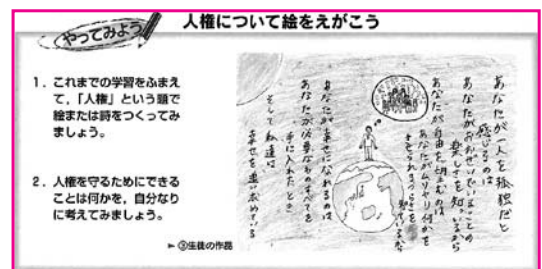 やってみよう
人権について絵をえがこう
1．これまでの学習をふまえ
て，「人権」という題で
絵または詩をつくってみ
ましょう。
2．人権を守るためにできる
ことは何かを，自分なり
に考えてみましょう。
►③生徒の作品
あなたが一人を孤独だと
感じるのは
あなたがおおぜいでいることの
楽しさを知っているから
あなたが自由を望むのは
あなたがムリヤリ何かを
させられるつらさを
知っているから
あなたが幸せになれるのは
あなたが必要なものすべてを
手に入れたとき
そして私達は
幸せを追い求めている